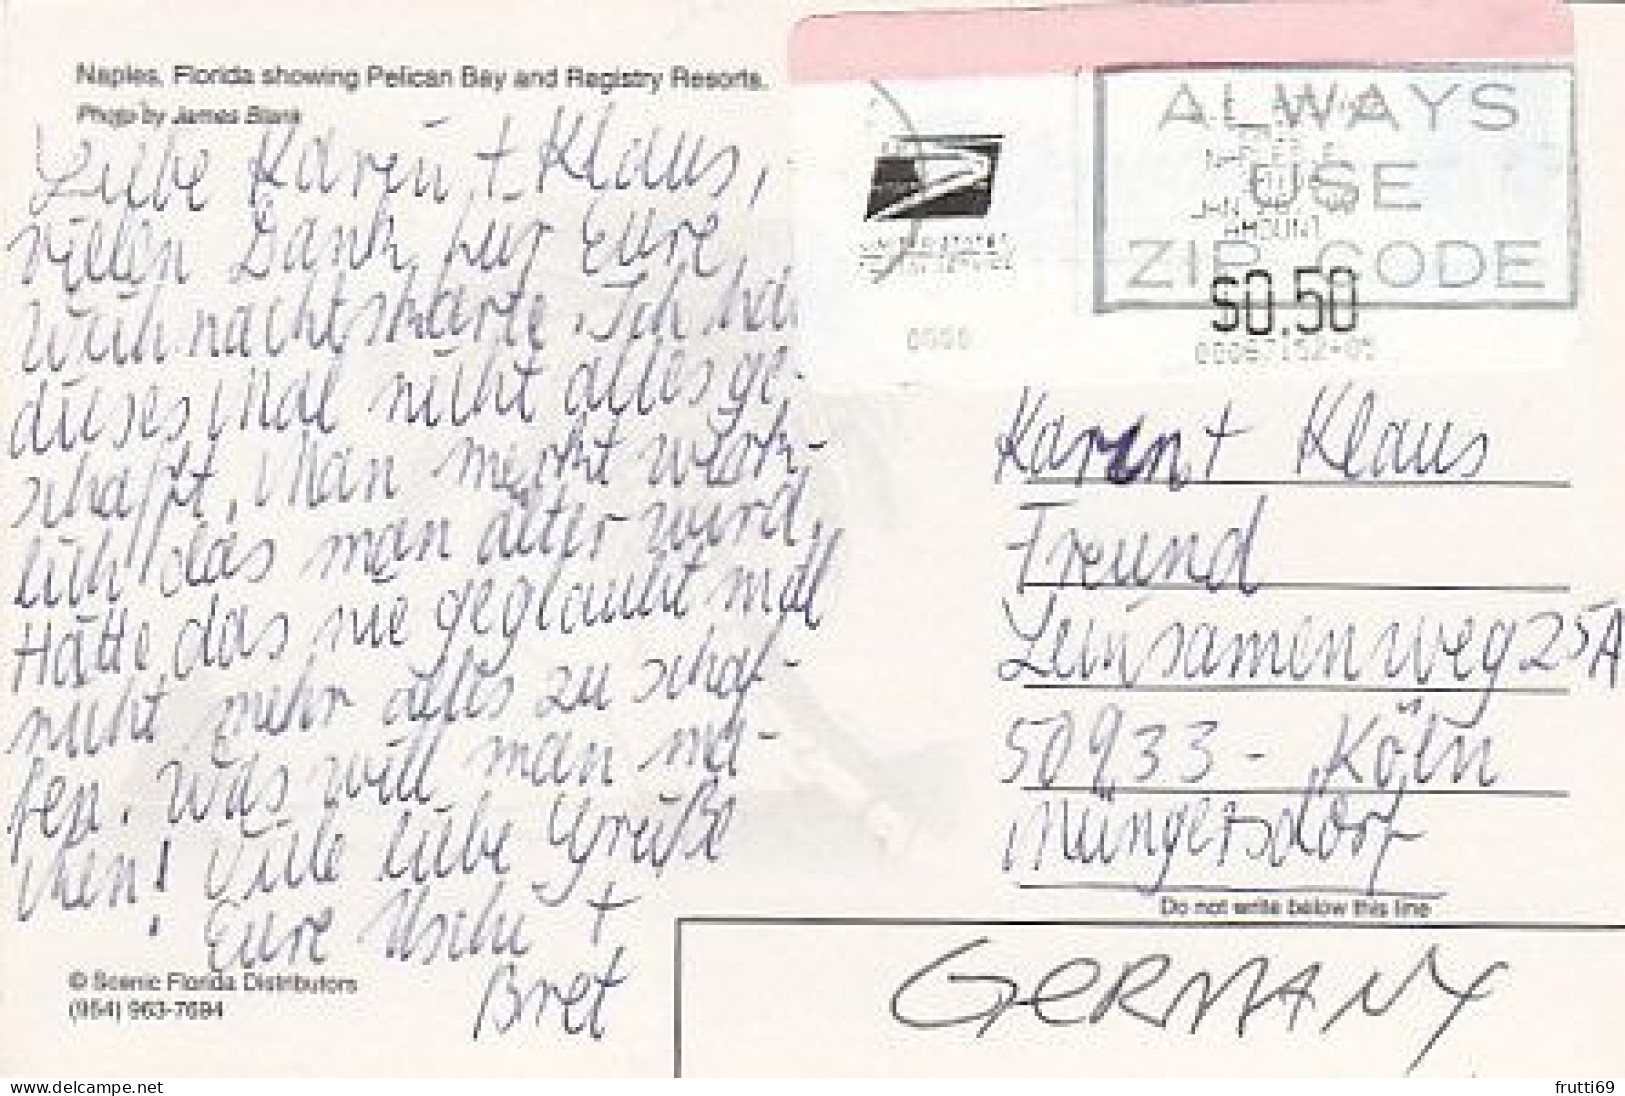 Naples, Florida showing Pelican Bay and Registry Resorts.
Photo by James Blank
Liebe Karin + Klaus,
vielen Dank für Eure
Weihnachtskarte. Ich hab
dieses Mal nicht alles ge-
schafft, Man merkt wirk-
lich das man älter wird,
Hätte das nie geglaubt mal
nicht mehr alles zu schaf-
fen. Was will man ma-
chen! Viele liebe Grüße
Eure Uschi +
Bret
© Scenic Florida Distributors
(954) 963-7694
ALWAYS
USE
ZIP CODE
UNITED STATES
POSTAL SERVICE
AMOUNT
$0.50
0000
00067152-05
Karin + Klaus
Freund
Leinsamenweg 25A
50933 - Köln
Müngersdorf
Do not write below this line
GERMANY
delcampe.net
frutti69